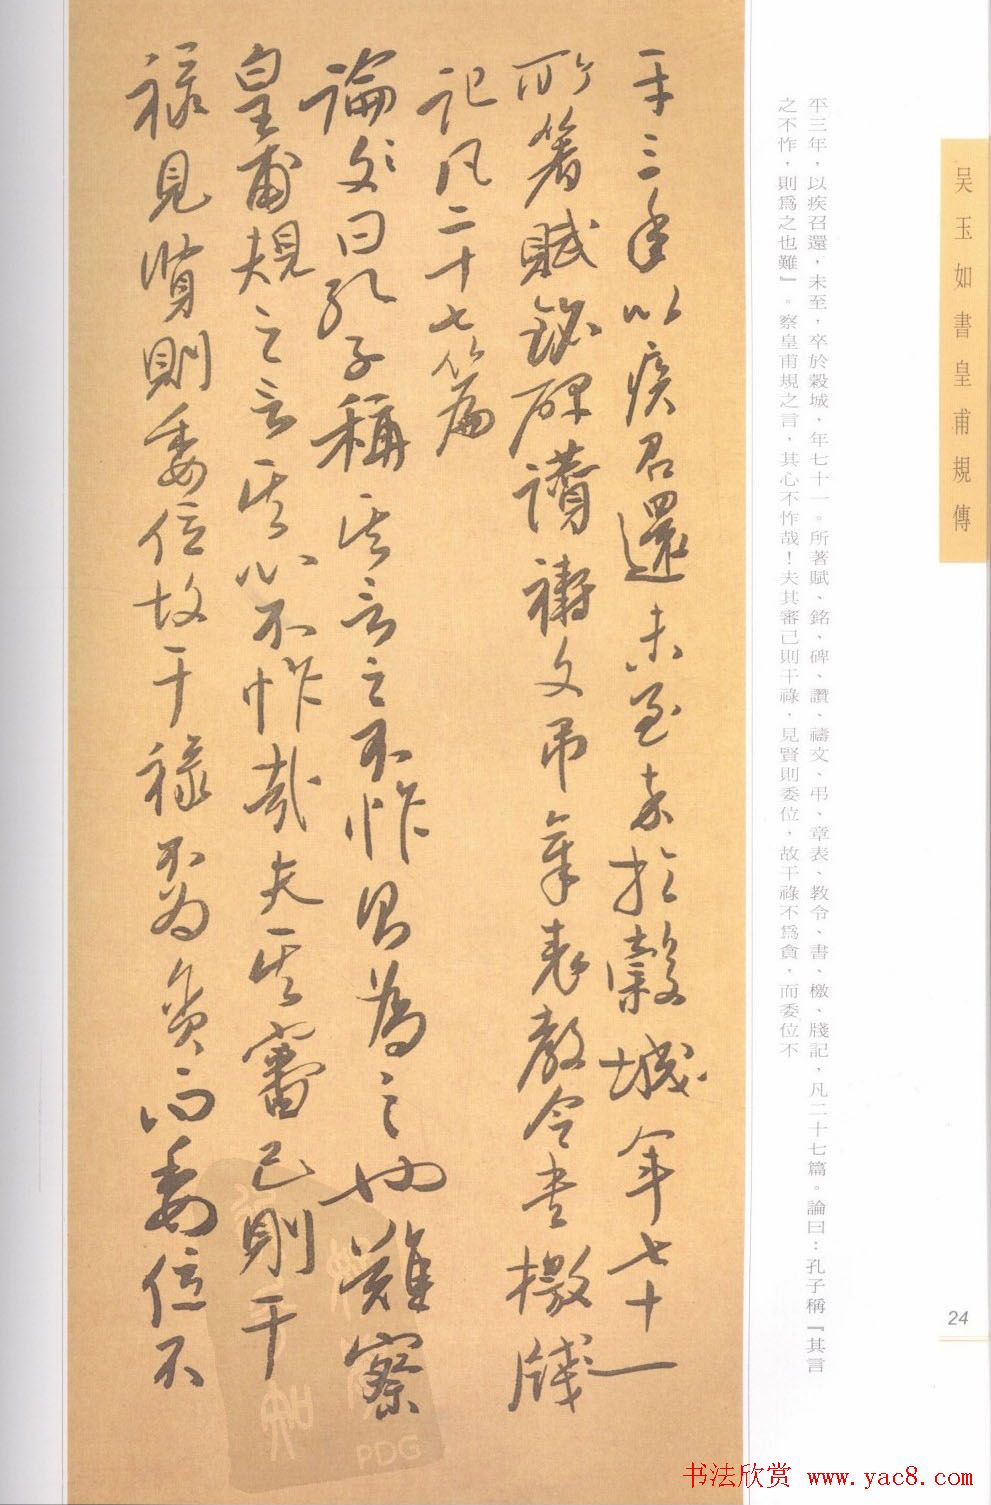 吴玉如書皇甫規傳
24
平三年，以疾召還，未至，卒於穀城，年七十一。所著賦、銘、碑、讚、禱文、弔、章表、教令、書、檄、牋記，凡二十七篇。論曰：孔子稱『其言
之不怍，則爲之也難』。察皇甫規之言，其心不怍哉！夫其審己則干祿，見賢則委位，故干祿不爲貪，而委位不
平三年以疾召還未至卒於穀城年七十一
所著賦銘碑讚禱文弔章表教令書檄牋
記凡二十七篇
論文曰孔子稱其言之不怍則為之也難察
皇甫規之言其心不怍哉夫其審己則干
祿見賢則委位故干祿不為貪而委位不
PDG
书法欣赏 www.yac8.com